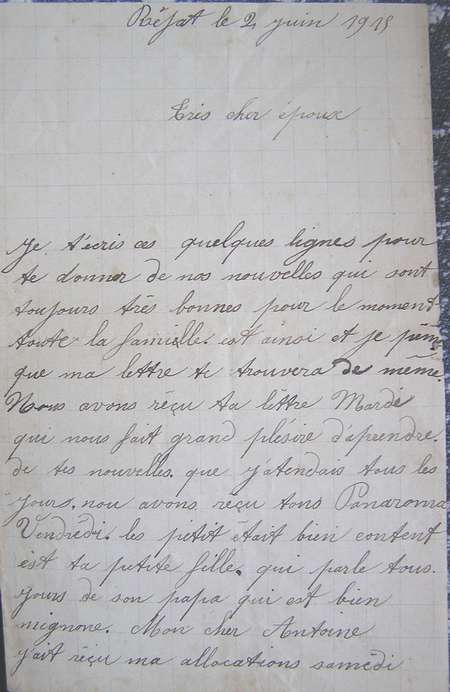 Réjat le 2 juin 1915
Très cher époux
Je t'écris ces quelques lignes pour
te donner de nos nouvelles qui sont
toujours très bonnes pour le moment
toute la famille est ainsi et je
que ma lettre te trouvera de même.
Nous avons réçu ta lêttre Mardi
qui nous fait grand plésire d'aprendre.
de tes nouvelles. que j'atendais tous les
jours. nou avons réçu tons Panaroma
Vendrédi. les pétit était bien content
est ta petite fille. qui parle tous.
jours de son papa qui est bien
mignone. Mon cher Antoine
j'ait réçu ma allocations samedi